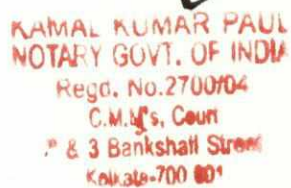 KAMAL KUMAR PAUL
NOTARY GOVT. OF INDIA
Regd. No.2700/04
C.M.M's, Court
& 3 Bankshall Street
Kolkata-700 001